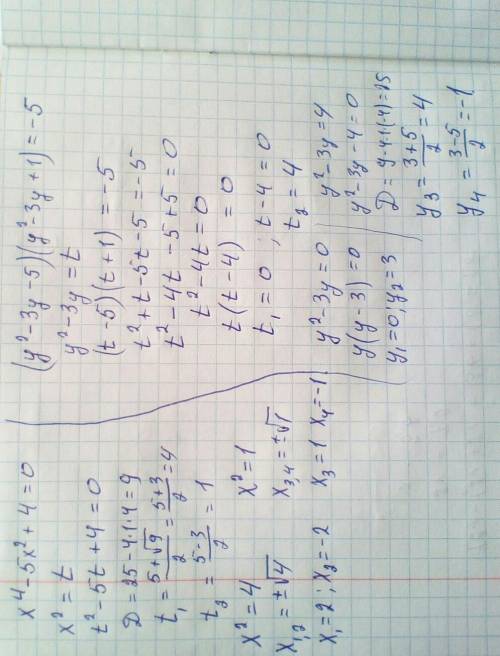 x⁴-5x²+4=0
x²=t
t²-5t+4=0
D=25-4·1·4=9
t₁=(5+√9)/2=(5+3)/2=4
t₂=(5-3)/2=1
x²=4 x²=1
x₁,₂=±√4 x₃,₄=±√1
x₁=2; x₂=-2 x₃=1 x₄=-1
(y²-3y-5)(y²-3y+1)=-5
y²-3y=t
(t-5)(t+1)=-5
t²+t-5t-5=-5
t²-4t-5+5=0
t²-4t=0
t(t-4)=0
t₁=0; t-4=0
t₂=4
y²-3y=0
y(y-3)=0
y₁=0, y₂=3
y²-3y=4
y²-3y-4=0
D=9-4·1·(-4)=25
y₃=(3+5)/2=4
y₄=(3-5)/2=-1